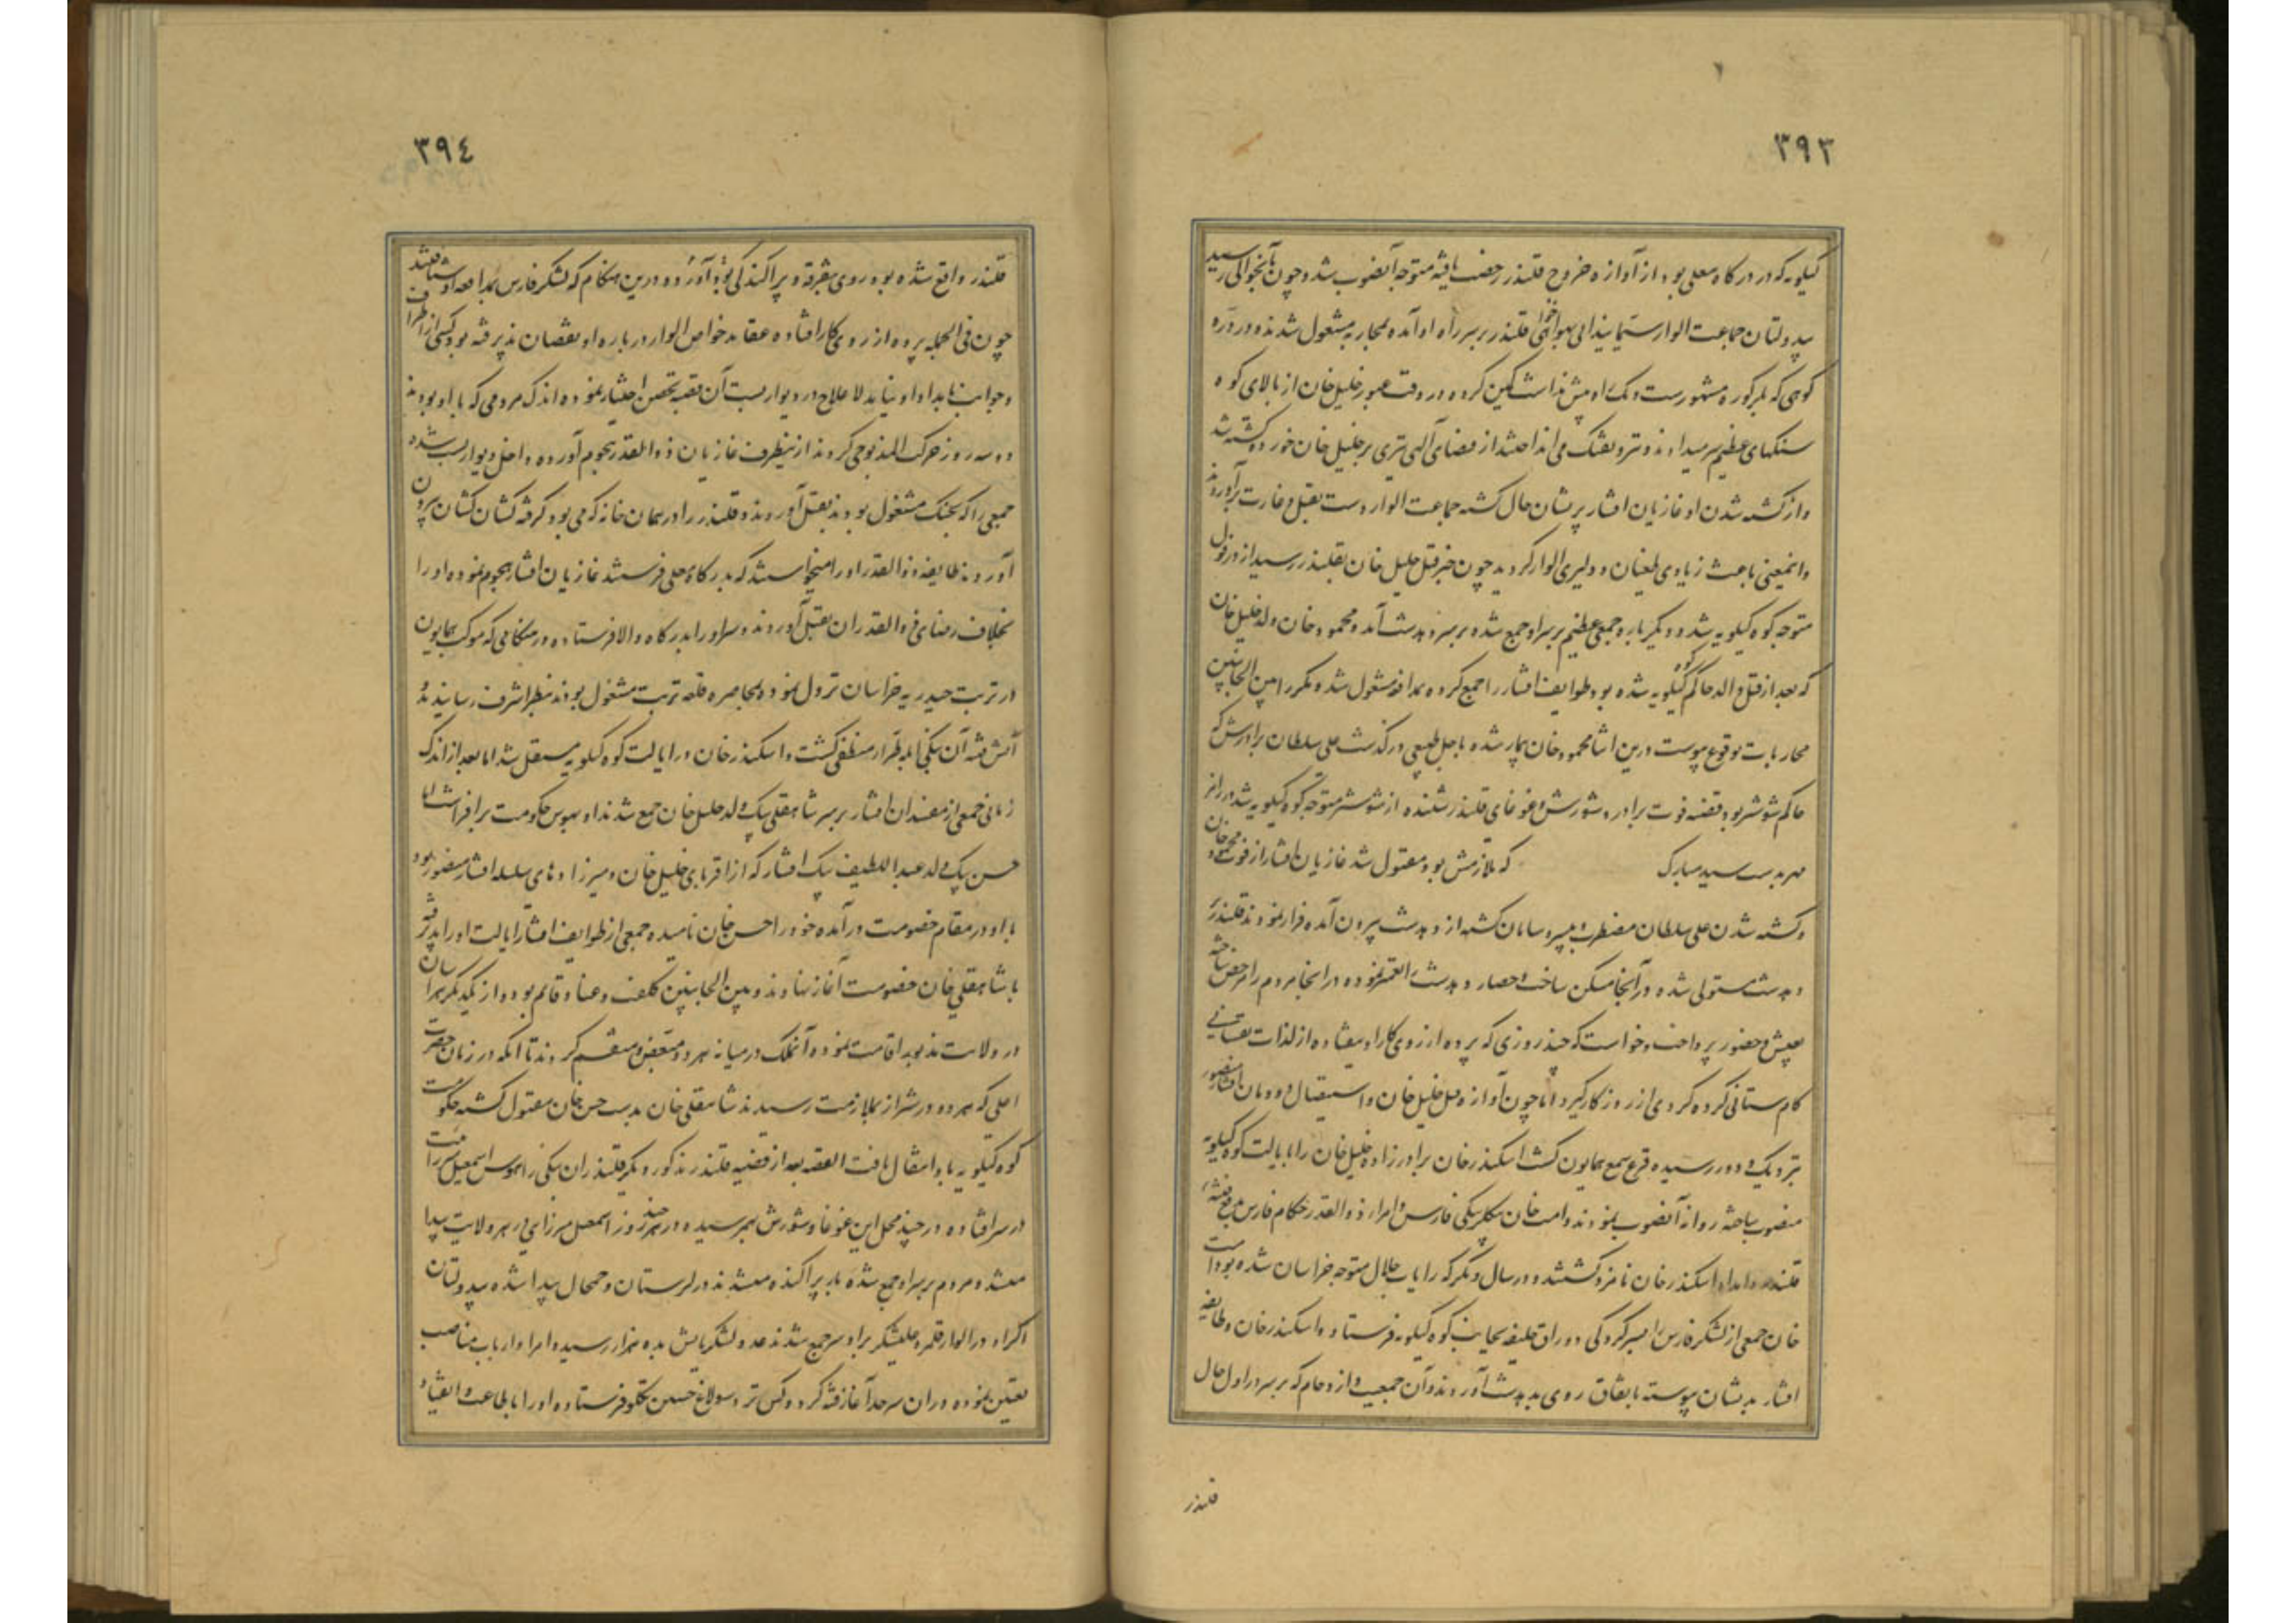 ۳۹۳
کیلویه که در درگاه معلی بود از آوازه خروج قلندر رخصت یافته متوجه آنصوب شد و چون بآنحوالی رسید
بیدولتان جماعت الوار سیما بهواخواهی قلندر بر سر راه او آمده بمحاربه مشغول شدند و در دره
کوهی که مشهورست و یک راه بیش نداشت کمین کرده در وقت عبور خلیل خان از بالای کوه
سنکهای عظیم سر میدادند و تیر و تفنک می انداختند از قضای آلهی تیری بر خلیل خان خورده کشته شد
و از کشته شدن او غازیان افشار پریشان حال کشته جماعت الوار دست بقتل و غارت برآوردند
و اینمعنی باعث زیادی طغیان و دلیری الوار کردید چون خبر قتل خلیل خان بقلندر رسید از دزفول
متوجه کوه کیلویه شد و دیکرباره جمعی عظیم بر سر او جمع شده بر سر دهدشت آمد و محمود خان ولد خلیل خان
که بعد از قتل والد حاکم کوه کیلویه شده بود طوایف افشار را جمع کرده بمدافعه مشغول شده مکرر امین الجانبین
محاربات بوقوع پیوست درین اثنا محمود خان بیمار شده باجل طبیعی درکذشت علی سلطان برادرش که
حاکم شوشتر بود قضیه فوت برادر و شورش و غوغای قلندر شنیده از شوشتر متوجه کوه کیلویه شد در رامز
مز بدست سید مبارک که ملازمش بود مقتول شد غازیان افشار از فوت محمود خان
و کشته شدن علی سلطان مضطرب و بی سر و سامان کشته از دهدشت بیرون آمده فرار نمودند قلندر
دهدشت مستولی شده در آنجا مسکن ساخت و حصار دهدشت را تعمیر نموده در آنجا مردم را مرخص ساخته
بعیش و حضور پرداخت و خواست که چند روزی که پرده از روی کار او نیفتاده از لذات نفسانی
کام ستانی کرده کردی از روزکار کیرد اما چون آوازه قتل خلیل خان و استیصال دودمان افشار منصور
بنزدیک و دور رسیده قرع سمع همایون کشت اسکندر خان برادرزاده خلیل خان را بایالت کوه کیلویه
منصوب ساخته روانه آنصوب نمودند و امت خان بیکلربیکی فارس و امراء ذوالقدر حکام فارس بدفع فتنه
قلندر و امداد اسکندر خان نامزد کشتند و در سال دیکر که رایات جلال متوجه خراسان شده بود امت
خان جمعی از لشکر فارس بسرکردکی دوراق خلیفه بجانب کوه کیلویه فرستاد و اسکندر خان و طایفه
افشار بدیشان پیوسته باتفاق روی بدهدشت آوردند و آن جمعیت و ازدحام که بر سر در اول حال
قلندر
۳۹٤
قلندر واقع شده بود روی بتفرقه و پراکندکی آورده بود درین هنکام که لشکر فارس بمدافعه او شتافتند
چون فی الجمله پرده از روی کار افتاده عقاید خواص الوار درباره او نقصان پذیرفته بود کسی از اطراف
و جوانب بامداد او نیامد لاعلاج در دیواربست آن قصبه تحصن اختیار نموده اندک مردمی که با او بودند
دو سه روز حرکت المذبوحی کردند ازینطرف غازیان ذوالقدر هجوم آورده داخل دیواربست شده
جمعی را که بجنک مشغول بودند بقتل آوردند و قلندر را در همان خانه که می بود کرفته کشان کشان بیرون
آوردند طایفه ذوالقدر او را میخواستند که بدرکاه معلی فرستند غازیان افشار هجوم نموده او را
بخلاف رضای ذوالقدران بقتل آوردند و سر او را بدرکاه والا فرستاده در هنکامی که موکب همایون
در تربت حیدریه خراسان نزول نموده بمحاصره قلعه تربت مشغول بودند بنظر اشرف رسانیدند
آتش فتنه آن بنکی نابه طرار منطفی کشت و اسکندر خان در ایالت کوه کیلویه مستقل شد اما بعد از اندک
زمانی جمعی از مفسدان افشار بر سر شاهقلی بیک ولد خلیل خان جمع شدند او بهوس حکومت برافراشت اما
حسن بیک ولد عبداللطیف بیک افشار که از اقربای خلیل خان و میرزاده های سلسله افشار منصور بود
با او در مقام خصومت درآمده خود را حسن خان نامیده جمعی از طوایف افشار ایالت او را پذیرفته
با شاهقلی خان خصومت آغاز نهادند و بین الجانبین کلفت و عناد قایم بود و از یکدیکر هراسان
در ولایت مذبور اقامت نموده آنملک در میانه هر دو متعرض منقسم کردند تا آنکه در زمان حضرت
اعلی که هر دو در شیراز بملازمت رسیدند شاهقلی خان بدست حسن خان مقتول کشته حکومت
کوه کیلویه باو انتقال یافت القصه بعد از قضیه قلندر مذکور دیکر قلندران بنکی را هوس اسمعیل میرزائیت
در سر افتاده در چند محل این غوغا و شورش بهم رسیده در هر چند روز اسمعیل میرزایی در هر ولایت پیدا
میشد و مردم بر سر او جمع شده باز پراکنده میشدند در لرستان و چمچال پیدا شده بیدولتان
اکراد و الوار قلمرو علیشکر بر او سر جمع شدند عدد لشکریانش بده هزار رسیده امرا و ارباب مناصب
تعیین نموده در آن سرحد آغاز فتنه کرد و کس نزد سولاغ حسین تکلو فرستاده او را باطاعت و انقیاد